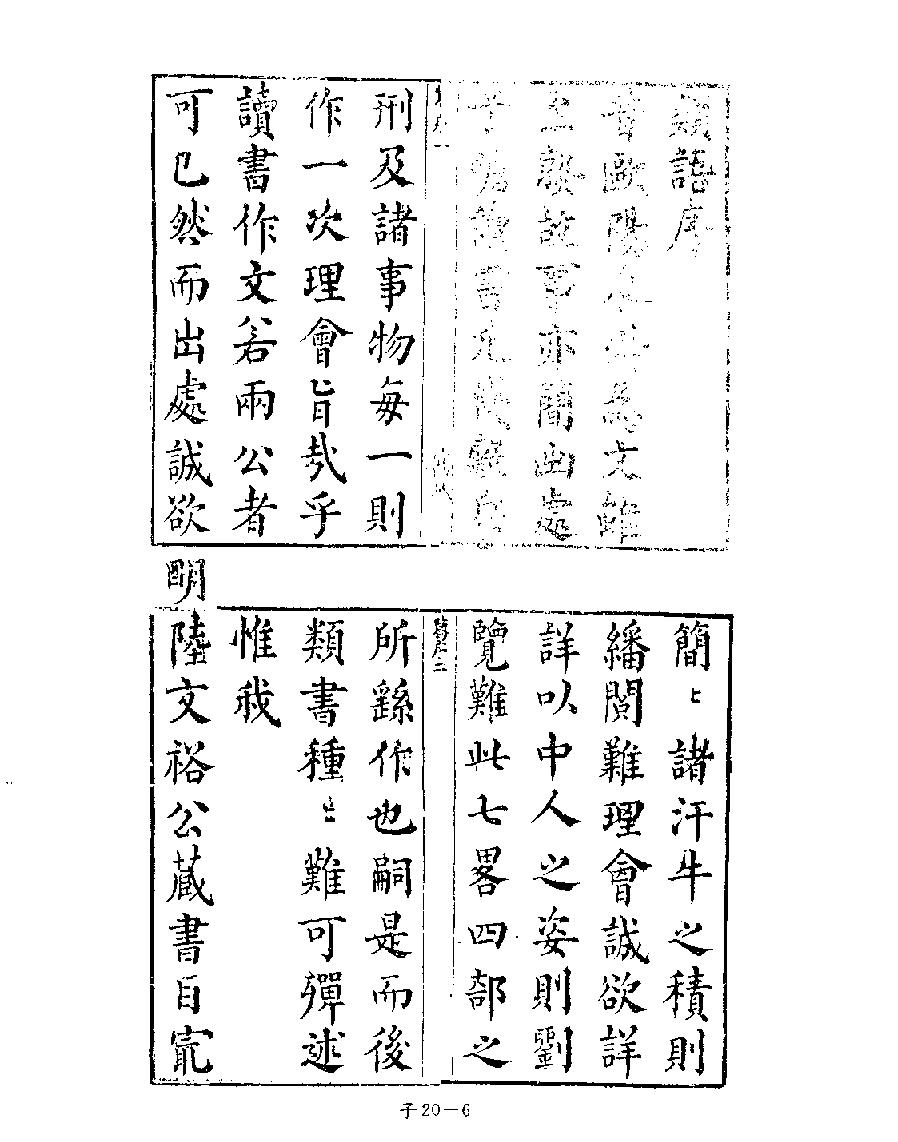 類語序
昔歐陽公每為文雖
上熟故事亦簡出處
子瞻讀書
刑及諸事物每一則
作一次理會旨哉乎
讀書作文若兩公者
可已然而出處誠欲
簡〻諸汗牛之積則
繙閱難理會誠欲詳
詳以中人之姿則劉
覽難此七畧四部之
所繇作也嗣是而後
類書種〻難可殫述
惟我
明
陸文裕公藏書目寘
子20—6